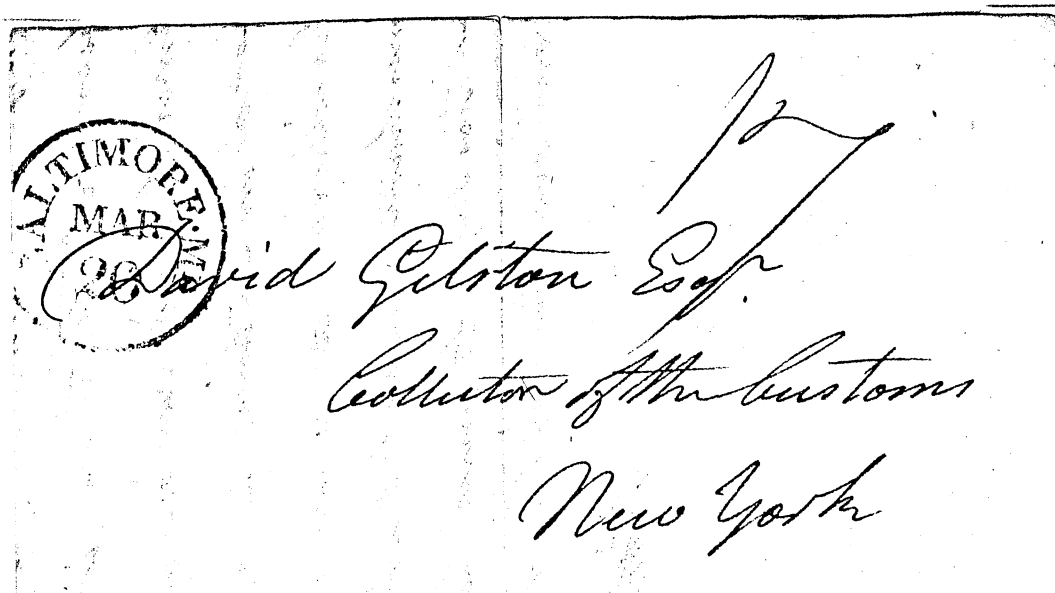 BALTIMORE. MD
MAR
David Gelston Esqr.
Collector of the Customs
New York